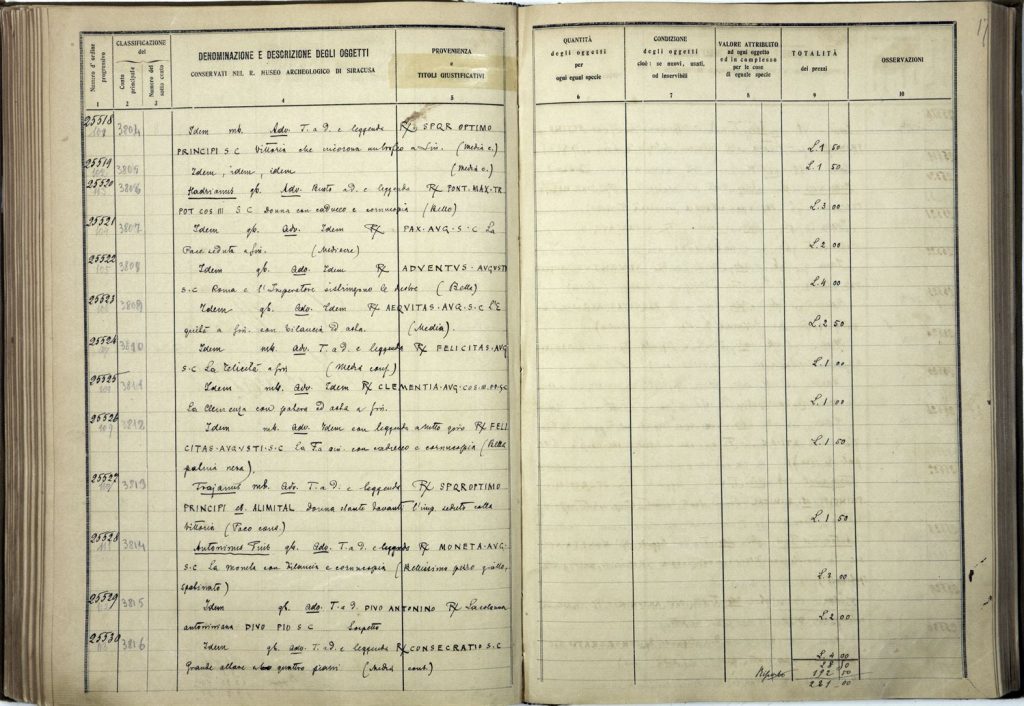 Numero d'ordine progressivo
CLASSIFICAZIONE del
Conto principale
Numero del sotto conto
DENOMINAZIONE E DESCRIZIONE DEGLI OGGETTI
CONSERVATI NEL R. MUSEO ARCHEOLOGICO DI SIRACUSA
PROVENIENZA
e
TITOLI GIUSTIFICATIVI
1 2 3 4 5
25518 3804 Idem mb. Adv. T. a D. e leggenda R/ SPQR OPTIMO
PRINCIPI S C Vittoria che incorona un trofeo a sin. (Media c.)
25519 3805 Idem, idem, idem (Media c.)
25520 3806 Hadrianus gb. Adv. Busto a D. e leggenda R/ PONT. MAX. TR
POT COS III S C Donna con caduceo e cornucopia (Bello)
25521 3807 Idem gb. Adv. Idem R/ PAX. AUG. S. C La
Pace seduta a sin. (Mediocre)
25522 3808 Idem gb. Adv. Idem R/ ADVENTVS. AVGVSTI
S. C Roma e l'Imperatore si stringono le destre (Bella)
25523 3809 Idem gb. Adv. Idem R/ AEQVITAS. AVG. S. C L'E
quità a sin. con bilancia ed asta. (Media).
25524 3810 Idem mb. Adv. T. a D. e leggenda R/ FELICITAS. AVG
S. C La Felicità a sin (Media cons.)
25525 3811 Idem mb. Adv. Idem R/ CLEMENTIA. AVG. COS. III. PP. SC
La Clemenza con patera ed asta a sin.
25526 109 3812 Idem mb. Adv. Idem con leggenda R/ FELI
CITAS. AVGVSTI. S. C La con caduceo e cornucopia (Bella
patina nera).
25527 3813 Trajanus mb. Adv. T. a D. e leggenda R/ SPQR OPTIMO
PRINCIPI ALIMITAL Donna stante davanti l'imp. seduto colla
Vittoria (Poco cons.)
25528 111 3814 Antoninus Pius gb. Adv. T. a D. e leggenda R/ MONETA. AVG.
S. C La moneta con bilancia e cornucopia (Bellissimo pezzo giallo,
spatinato)
25529 3815 Idem gb. Adv. T. a D. DIVO ANTONINO R/ La colonna
antoniniana DIVO PIO S C Sospetto
25530 3816 Idem gb. Adv. T. a D. e leggenda R/ CONSECRATIO S. C
Grande altare quattro (Media cons.)
17
QUANTITÀ
degli oggetti
per
ogni egual specie
CONDIZIONE
degli oggetti
cioè: se nuovi, usati,
od inservibili
VALORE ATTRIBUITO
ad ogni oggetto
ed in complesso
per le cose
di eguale specie
TOTALITÀ
dei prezzi
OSSERVAZIONI
6 7 8 9 10
L. 1 50
L. 1 50
L. 3 00
L. 2 00
L. 4 00
L. 2 50
L. 1 00
L. 1 00
L. 1 50
L. 1 50
L. 3 00
L. 2 00
L. 4 00
28 50
Riporto 192 50
221 00